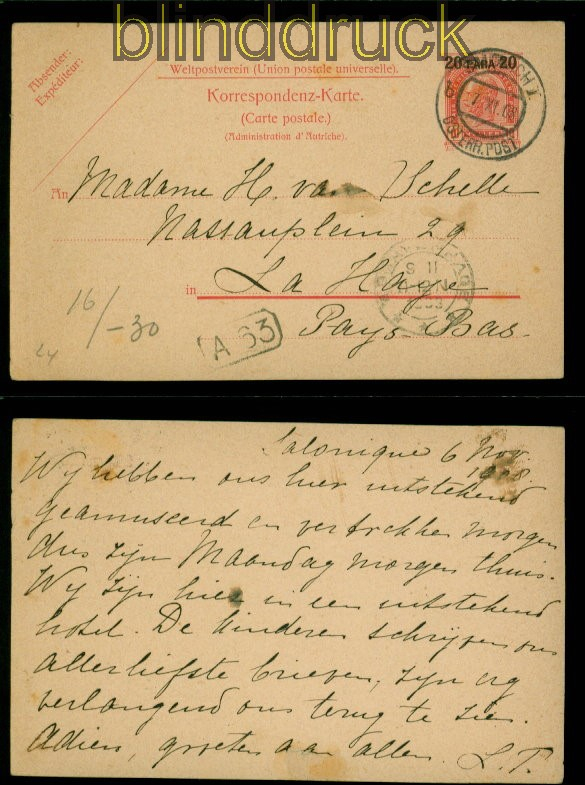 blinddruck
Absender:
Expéditeur:
Weltpostverein (Union postale universelle).
Korrespondenz-Karte.
(Carte postale.)
(Administration d'Autriche).
20 PARA 20
ÖSTERR. POST
An Madame H. van Schelle
Nassauplein 29
in La Haye
Pays-Bas.
16/-30
24
A 63
Salonique 6 Nov.
1908
Wy hebben ons hier uitstekend
geamuseerd en vertrekken morgen
dus zyn Maandag morgen thuis.
Wy zyn hier in een uitstekend
hotel. De kinderen schryven ons
allerliefste brieven, zyn erg
verlangend ons terug te zien.
Adieu, groeten aan allen. L. T.